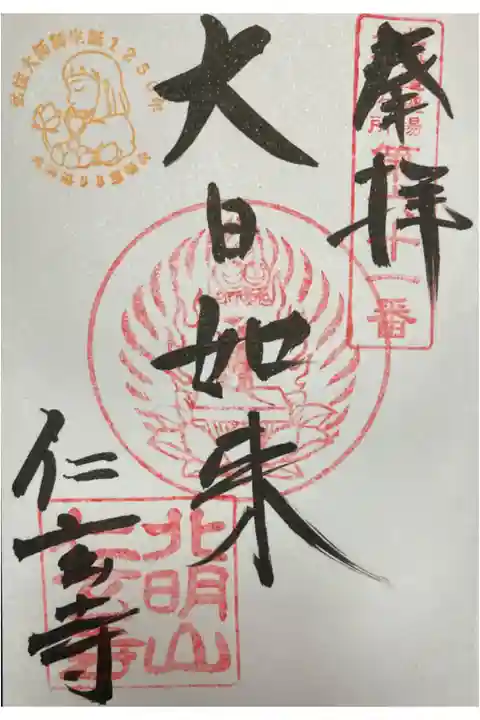 奉拝
第十一番
大日如来
仁玄寺
北明山
仁玄寺
弘法大師御生誕1250年